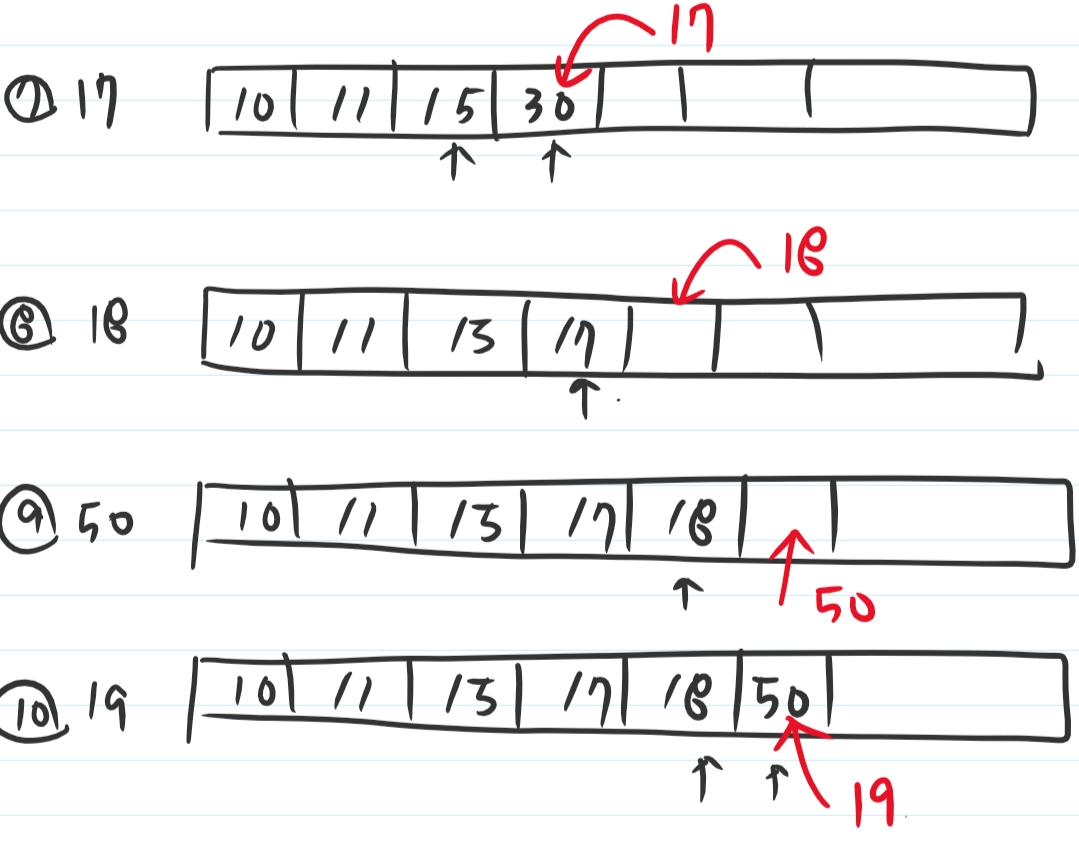 17
⑦ 17 10 11 15 30
18
⑧ 18 10 11 15 17
⑨ 50 10 11 15 17 18
50
⑩ 19 10 11 15 17 18 50
19